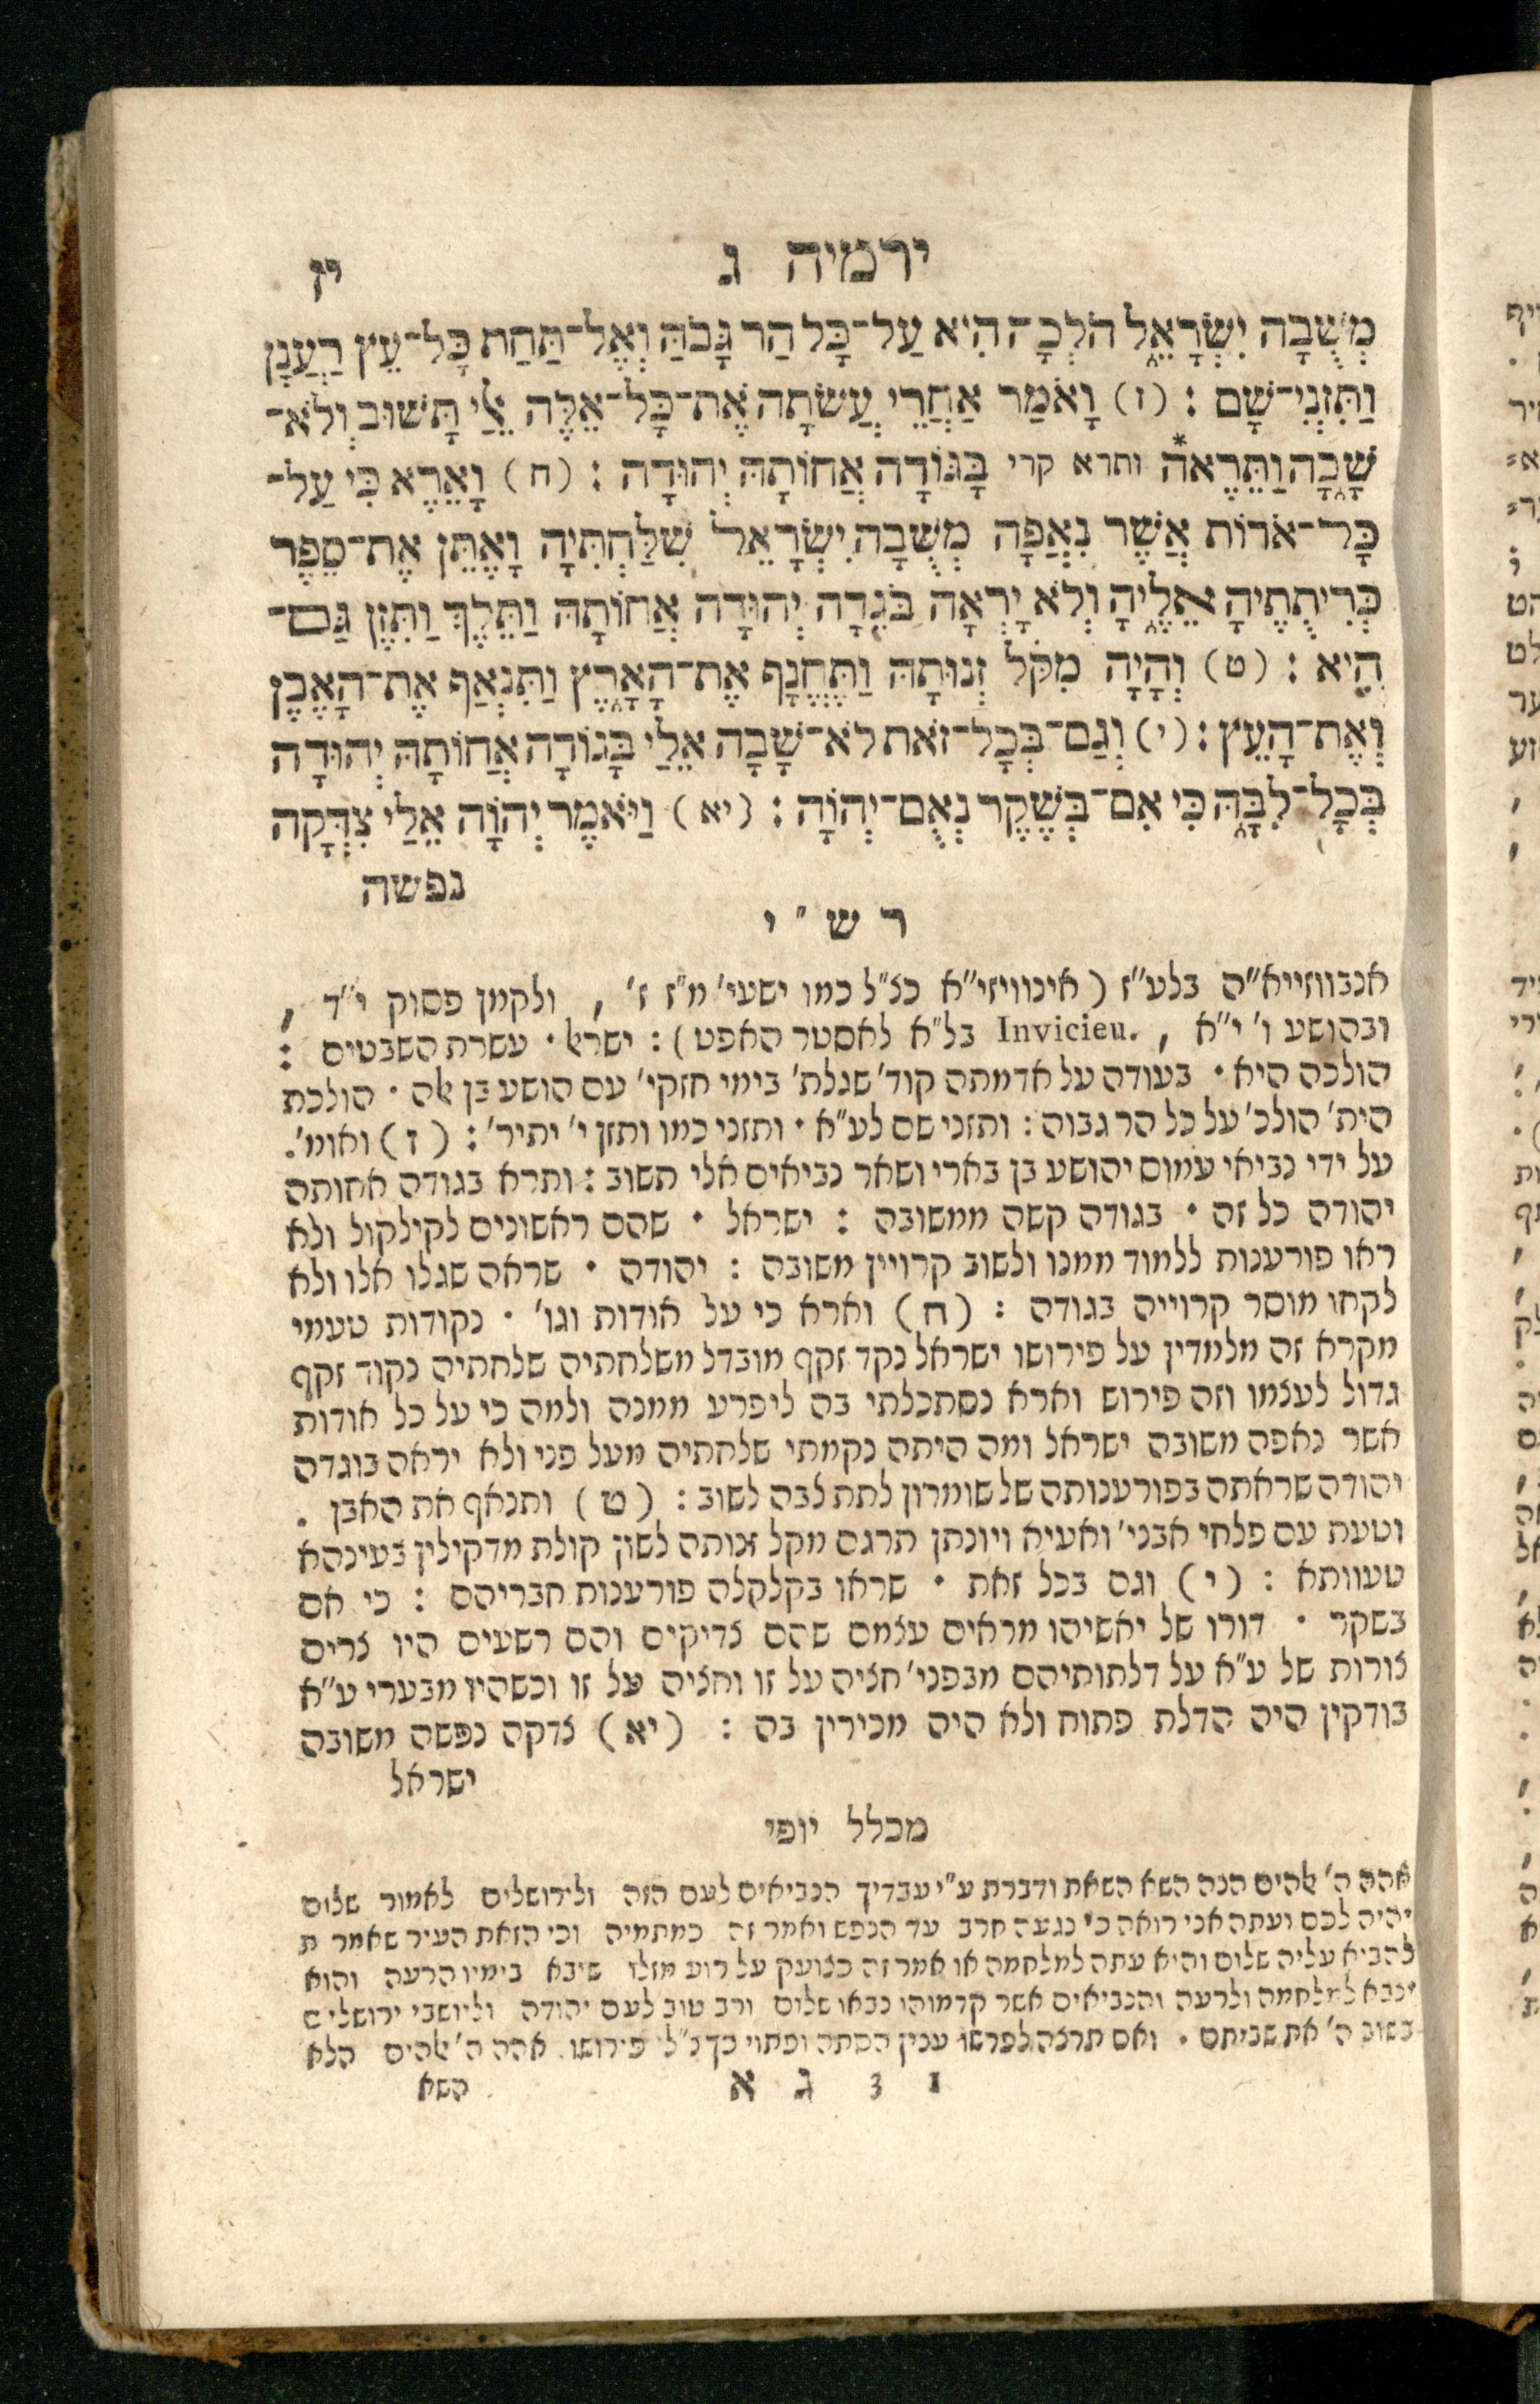 ירמיה ג יז
מְשֻׁבָה יִשְׂרָאֵל הֹלְכָה הִיא עַל־כָּל הַר גָּבֹהַּ וְאֶל־תַּחַת כָּל־עֵץ רַעֲנָן
וַתִּזְנִי־שָׁם : (ז) וָאֹמַר אַחֲרֵי עֲשׂתָהּ אֶת־כָּל־אֵלֶּה אֵלַי תָּשׁוּב וְלֹא־
שָׁבָה וַתֵּרֶאה* ותרא קרי בָּגוֹדָה אֲחוֹתָהּ יְהוּדָה : (ח) וָאֵרֶא כִּי עַל־
כָּל־אֹדוֹת אֲשֶׁר נִאֲפָה מְשֻׁבָה יִשְׂרָאֵל שִׁלַּחְתִּיהָ וָאֶתֵּן אֶת־סֵפֶר
כְּרִיתֻתֶיהָ אֵלֶיהָ וְלֹא יָרְאָה בֹּגֵדָה יְהוּדָה אֲחוֹתָהּ וַתֵּלֶךְ וַתִּזֶן גַּם־
הִיא : (ט) וְהָיָה מִקֹּל זְנוּתָהּ וַתֶּחֱנַף אֶת־הָאָרֶץ וַתִּנְאַף אֶת־הָאֶבֶן
וְאֶת־הָעֵץ : (י) וְגַם־בְּכָל־זֹאת לֹא־שָׁבָה אֵלַי בָּגוֹדָה אֲחוֹתָהּ יְהוּדָה
בְּכָל־לִבָּהּ כִּי אִם־בְּשֶׁקֶר נְאֻם־יְהוָֹה : (יא) וַיֹּאמֶר יְהוָֹה אֵלַי צִדְּקָה
נפשה
ר ש "י
אנבווזייא"ה בלע"ז (אינוויזי"א כצ"ל כמו ישעי' מ"ז ז', ולקמן פסוק י"ד,
ובהושע ו' י"א, Invicieu. בל"א לאסטר האפט) : ישראל · עשרת השבטים :
הולכה היא · בעודה על אדמתה קוד' שגלת' בימי חזקי' עם הושע בן אלה · הולכת
הית' הולכ' על כל הר גבוה : ותזני שם לע"א · ותזני כמו ותזן י' יתיר' : (ז) ואומ'.
על ידי נביאי עמוס יהושע בן בארי ושאר נביאים אלי תשוב : ותרא בגודה אחותה
יהודה כל זה · בגודה קשה ממשובה : ישראל · שהם ראשונים לקילקול ולא
ראו פורענות ללמוד ממנו ולשוב קרויין משובה : יהודה · שראה שגלו אלו ולא
לקחו מוסר קרוייה בגודה : (ח) וארא כי על אודות וגו' · נקודות טעמי
מקרא זה מלמדין על פירושו ישראל נקד זקף מובדל משלחתיה שלחתיה נקוד זקף
גדול לעצמו וזה פירוש וארא נסתכלתי בה ליפרע ממנה ולמה כי על כל אודות
אשר נאפה משובה ישראל ומה היתה נקמתי שלחתיה מעל פני ולא יראה בוגדה
יהודה שראתה בפורענותה של שומרון לתת לבה לשוב : (ט) ותנאף את האבן .
וטעת עם פלחי אבני' ואעיא ויונתן תרגם מקל זנותה לשון קולת מדקילין בעינהא
טעוותא : (י) וגם בכל זאת · שראו בקלקלה פורענות חבריהם : כי אם
בשקר · דורו של יאשיהו מראים עצמם שהם צדיקים והם רשעים היו צרים
צורות של ע"א על דלתותיהם מבפני' חציה על זו וחציה על זו וכשהיו מבערי ע"א
בודקין היה הדלת פתוח ולא היה מכירין בה : (יא) צדקה נפשה משובה
ישראל
מכלל יופי
אהה ה' אלהים הנה השא השאת ודברת ע"י עבדיך הנביאים לעם הזה ולירושלים לאמור שלום
יהיה לכם ועתה אני רואה כי נגעה חרב עד הנפש ואמר זה כמתמיה וכי הזאת העיר שאמרת
להביא עליה שלום והיא עתה למלחמה או אמר זה כצועק על רוע מזלו שיבא בימיו הרעה והוא
ינבא למלחמה ולרעה והנביאים אשר קדמוהו נבאו שלום ורב טוב לעם יהודה וליושבי ירושלים
בשוב ה' את שביתם · ואם תרצה לפרשו ענין הסתה ופתוי כך נ"ל פירושו. אהה ה' אלהים הלא
1 3 ג א השא